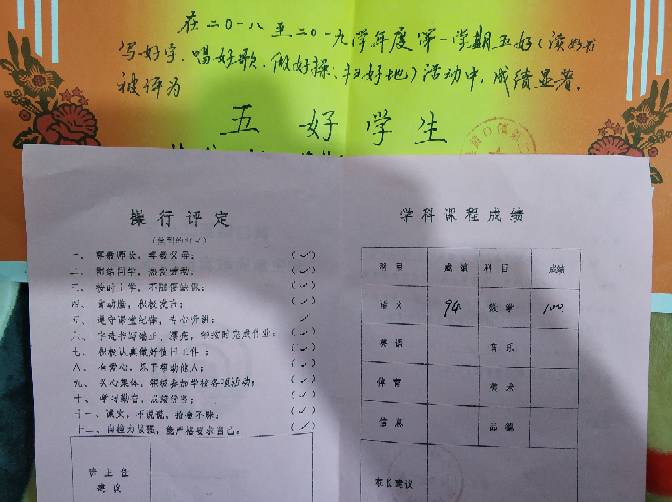 在二0一八至二0一九学年度第一学期五好(读好书
写好字、唱好歌、做好操、扫好地)活动中,成绩显著,
被评为
五好学生
操行评定
(做到的打✓)
一、尊敬师长,孝敬父母; (✓)
二、团结同学,热爱劳动; (✓)
三、按时上学,不随便缺课; (✓)
四、肯动脑,积极发言; (✓)
五、遵守课堂纪律,专心听讲; ✓
六、字迹书写端正、漂亮,能按时完成作业; (✓)
七、积极认真做好值日工作; (✓)
八、有爱心,乐于帮助他人; (✓)
九、关心集体,积极参加学校各项活动; (✓)
十、学习勤奋,成绩优秀; (✓)
十一、诚实,不说谎,拾金不昧; (✓)
十二、自控力较强,能严格要求自己。 (✓)
班主任
建议
学科课程成绩
科目 成绩 科目 成绩
语文 94 数学 100
英语 音乐
体育 美术
信息 品德
家长建议